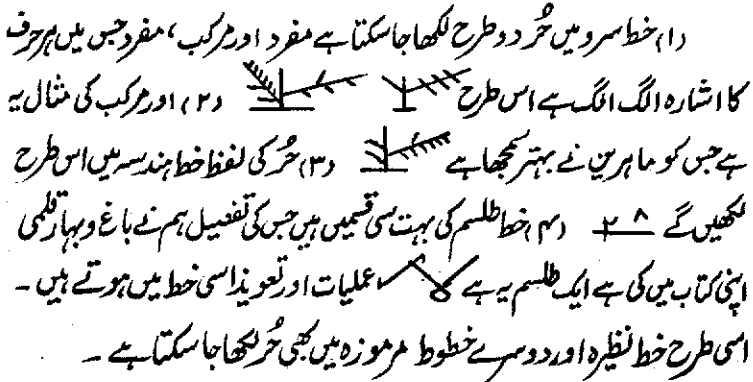 (۱) خط سرو میں حُر دو طرح لکھا جا سکتا ہے مفرد اور مرکب، مفرد جس میں ہر حرف
کا اشارہ الگ الگ ہے اس طرح (۲) اور مرکب کی مثال یہ
ہے جس کو ماہرین نے بہتر سمجھا ہے (۳) حُر کی لفظ خط ہندسہ میں اس طرح
لکھیں گے ۲ ۸ (۴) خط طلسم کی بہت سی قسمیں ہیں جس کی تفصیل ہم نے باغ و بہار قلمی
اپنی کتاب میں کی ہے ایک طلسم یہ ہے عملیات اور تعویذ اسی خط میں ہوتے ہیں ۔
اسی طرح خط نظیرہ اور دوسرے خطوط مرموزہ میں بھی حُر لکھا جا سکتا ہے ۔